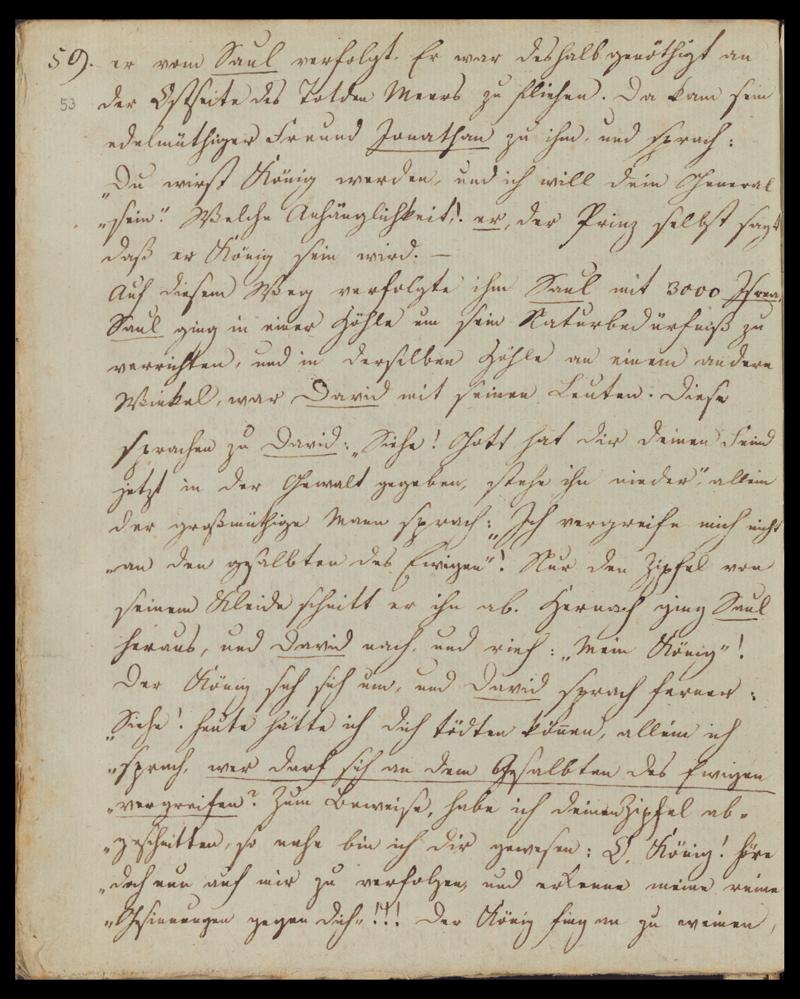 59. er vom Saul verfolgt. Er war deshalb genöthigt an
53 der Ostseite des Todten Meers zu fliehen. Da kam sein
edelmüthiger Freund Jonathan zu ihm, und sprach:
„Du wirst König werden, und ich will dein General
„sein“. Welche Anhänglichkeit! er, der Prinz selbst sagt
daß er König sein wird. —
Auf diesem Weg verfolgte ihm Saul mit 3000 Isrea.
Saul ging in einer Höhle um sein Naturbedürfniß zu
verrichten, und in derselben Höhle an einem andern
Winkel, war David mit seinen Leuten. Diese
sprachen zu David: „Siehe! Gott hat dir deinen Feind
jetzt in der Gewalt gegeben, stehe ihn nieder“, allein
der großmüthige Mann sprach: „Ich vergreife mich nicht
„an den gesalbten des Ewigen“! Nur den Zipfel von
seinem Kleide schnitt er ihn ab. Hernach ging Saul
heraus, und David nach, und rief: „Mein König“!
Der König sah sich um, und David sprach ferner:
„Siehe! heute hätte ich dich tödten können, allein ich
„sprach, wer darf sich an dem Gesalbten des Ewigen
„vergreifen? Zum Beweise, habe ich deinen Zipfel ab-
„geschnitten, so nahe bin ich dir gewesen: O, König! höre
„doch nun auf mir zu verfolgen, und erkenne meine reine
„Gesinnungen gegen dich“!!! Der König fing an zu weinen,